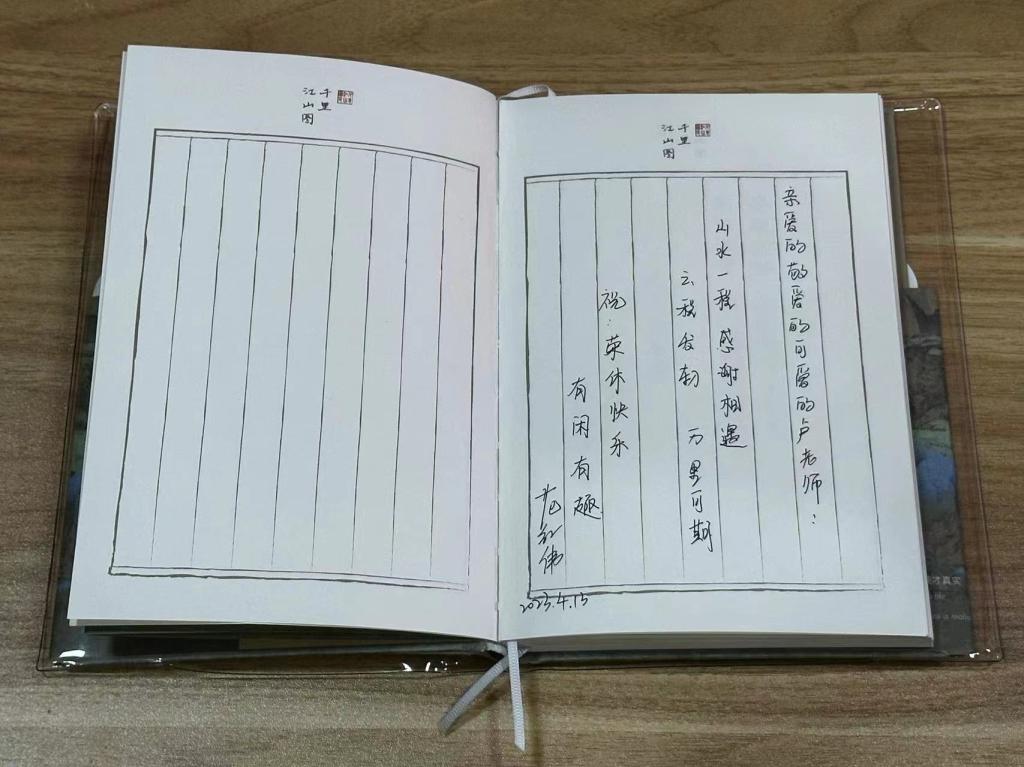 千里
江山图
千里
江山图
亲爱的敬爱的可爱的卢老师：
山水一程 感谢相遇
云程发轫 万里可期
祝：荣休快乐
有闲有趣
范红伟
2023.4.13
才真实